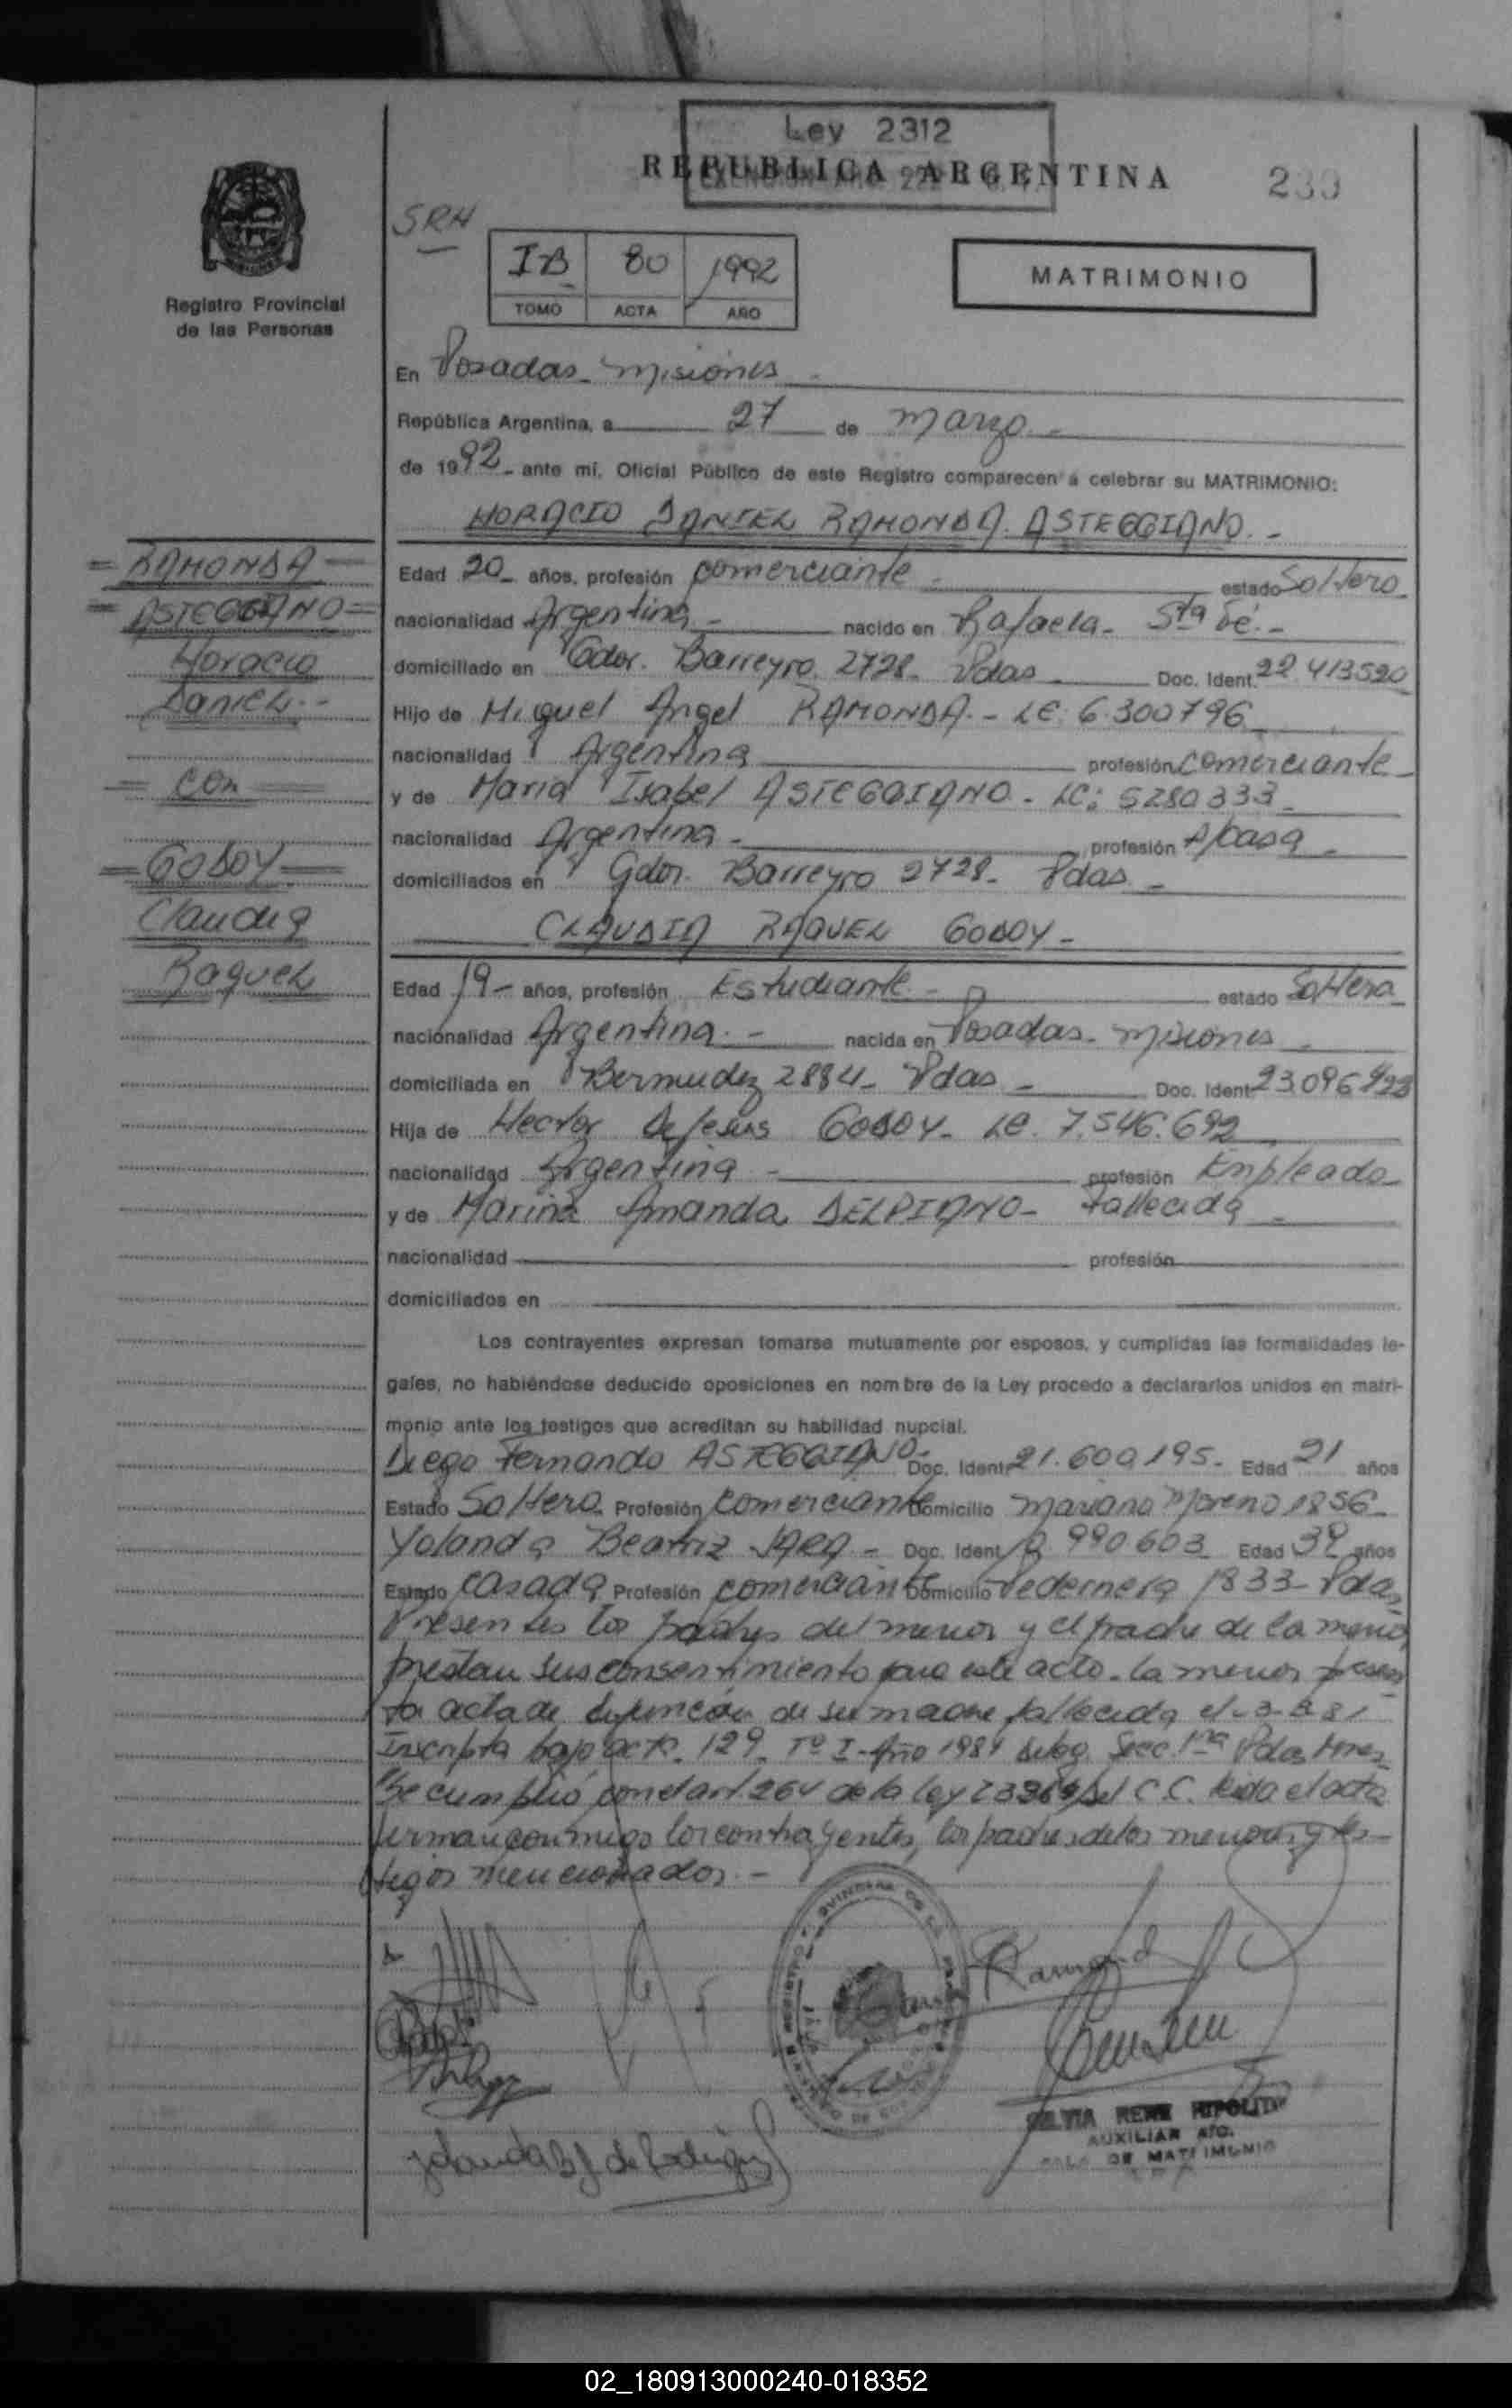 Ley 2312
REPUBLICA ARGENTINA
SRH
IB 80 1992
TOMO ACTA AÑO
MATRIMONIO
Registro Provincial
de las Personas
En Posadas - Misiones -
República Argentina, a 27 de marzo -
de 1992 - ante mí, Oficial Público de este Registro comparecen a celebrar su MATRIMONIO:
HORACIO DANIEL RAMONDA ASTEGGIANO. -
= RAMONDA =
= ASTEGGIANO =
Horacio
Daniel. -
= con =
= GODOY =
Claudia
Raquel
Edad 20 - años, profesión comerciante - estado Soltero
nacionalidad Argentina - nacido en Rafaela - Sta Fé. -
domiciliado en Gdor. Barreyro 2728 - Pdas - Doc. Ident. 22.413520
Hijo de Miguel Angel RAMONDA. - LE: 6.300796
nacionalidad Argentina profesión comerciante
y de Maria Isabel ASTEGGIANO - LC: 5280333 -
nacionalidad Argentina - profesión A/casa -
domiciliados en Gdor. Barreyro 2728 - Pdas -
CLAUDIA RAQUEL GODOY -
Edad 19 - años, profesión Estudiante - estado Soltera
nacionalidad Argentina. - nacida en Posadas - Misiones -
domiciliada en Bermudez 2884 - Pdas - Doc. Ident. 23.096
Hija de Hector De Jesus GODOY - LE. 7.546.692
nacionalidad Argentina - profesión Empleado
y de Marina Amanda DELPIANO - Fallecida -
nacionalidad profesión
domiciliados en
Los contrayentes expresan tomarse mutuamente por esposos, y cumplidas las formalidades le-
gales, no habiéndose deducido oposiciones en nombre de la Ley procedo a declararlos unidos en matri-
monio ante los testigos que acreditan su habilidad nupcial.
Diego Fernando ASTEGGIANO - Doc. Ident. 21.600.195 - Edad 21 años
Estado Soltero Profesión comerciante Domicilio Mariano Moreno 1856 -
Yolanda Beatriz JARA - Doc. Ident. 990603 Edad 39 años
Estado casada Profesión comerciante Domicilio Pedernera 1833 - Pdas.
Presentes los padres del menor y el padre de la menor
prestan sus consentimiento para este acto. La menor presen
ta acta de defunción de su madre fallecida el
Inscripta bajo acta 129 - Tº I - Año 1981 Secc. 1ra Pdas Mnes
Se cumplió con el art. 264 de la ley del C.C. leida el acta
firman conmigo los contrayentes, los padres de los menores y tes-
tigos mencionados. -
Yolanda B J de Rodriguez
SILVIA RENE HIPOLITO
AUXILIAR
DE MATRIMONIO
02_180913000240-018352